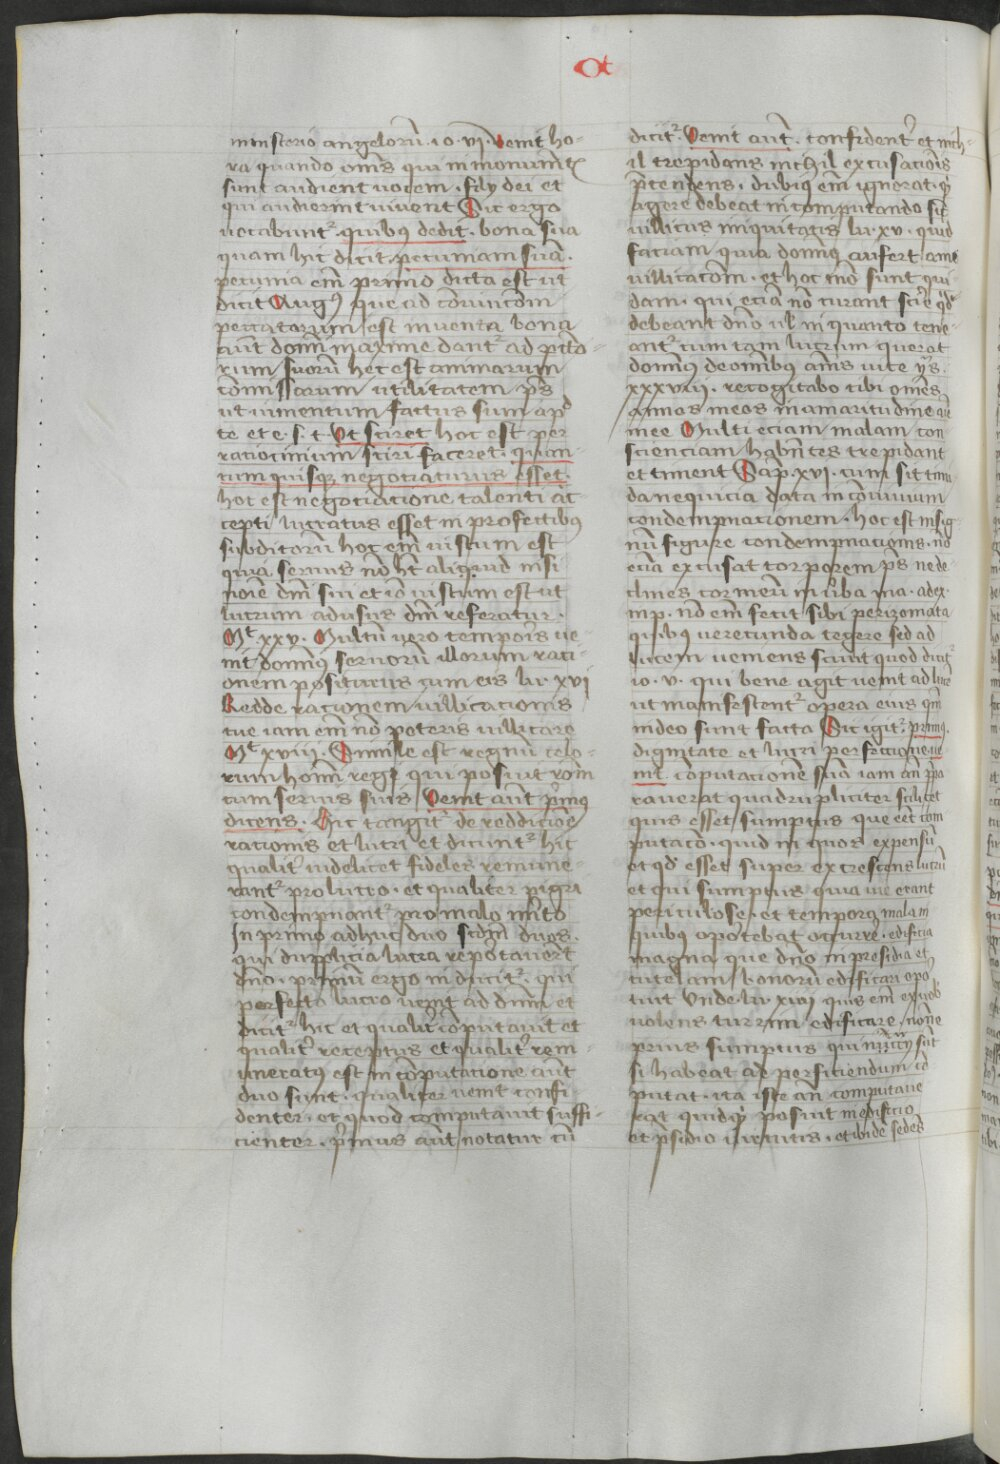 ministerio angelorū. io. vi. venit ho-
ra quando om̄s qui in monumēt
sunt audient uocem. filij dei et
qui audierint uiuent Sic ergo
uocabunt᷑. quibꝰ dedit. bona sua
quam hic dicit pecuniam suā.
pecunia em̄ primo dicta est ut
dicit Augꝰ que ad
peccatorum est inuenta bona
aūt domī maxime dant᷑ ad
suorū hec est animarum
cōmissarum utilitatem. p̄s
ut iumentum factus sum ap̄d
te et e. s. t. Ut sciret hoc est per
ratiocinium sciri faceret. quan-
tum quisqꝫ negotiaturus esset.
hoc est negotiacione talenti ac
cepti lucratus esset in profectibꝰ
subditorū hoc em̄ iustum est
quia seruus nō ht̄ aliquid in si
noīe dn̄i sui et iō iustum est ut
lucrum ad usus dn̄i referatur.
Mt xxv. Multū uero temporis ue-
nit domīꝰ seruorū illorum raci-
onem positurus cum eis lu. xvi
Redde racionem uillicacionis
tue iam em̄ nō poteris uillicare
Mt xviii. Simile est regnū celo-
rum homī regi qui posuit rōm
cum seruis suis Venit aūt p̄mus
dicens. Hic tangit᷑ de reddicōe
racionis et lucri et dicunt᷑ hic
qualit᷑ uidelicet fideles remune-
rant᷑ pro lucro. et qualiter pigri
condempnant᷑ pro malo m̄ito
In primo adhuc duo scdm̄ duos.
qui dupplicia lucra reportauer̄t
dn̄o. primū ergo in dicit᷑. qui
perfecto lucro uenit ad dn̄m et
dicit᷑ hic et qualit᷑ cōputauit et
qualit᷑ receptus et qualit᷑ rem-
uneratꝰ est in cōputatione aūt
duo sunt. qualiter uenit confi-
denter. et quod computauit suffi-
cienter. p̄mus aūt notatur cū
dicit᷑. Venit aūt. confident᷑ et nich-
il trepidans nichil excusacōis
p̄tendens. dubiꝰ em̄ ignorat. qd
agere debeat in computando sic
uillicus iniquitatis lu. xv. quid
faciam quia domīꝰ aufert a me
uillicacōm. et hoc mō sunt qui
dam. qui eciā nō curant scire qd
debeant dn̄o ul̄ in quanto tene-
ant᷑ cum tam lucrum querat
domīꝰ de omībꝰ ānis uite ys.
xxxviii. recogitabo tibi om̄es
annos meos in amaritudine aīe
mee Multi eciam malam con-
scienciam habn̄tes trepidant
et timent Sap̄. xvi. cum sit timi-
da nequicia data in cōmnium
condempnacionem. hoc est in sig-
nū figure condempnacionis. nō
eciā excusat torporem p̄s ne de-
clines cor meū in ūba ma. ad ex.
mp. nō em̄ fecit sibi perizomata
quibꝰ uerecunda tegere sed ad
lucem ueniens sciuit quod dicit᷑
io. v. qui bene agit uenit ad lucē
ut manifestent᷑ opera eius qm̄
in deo sunt facta Sic igit᷑. primꝰ.
dignitate et lucri perfectione ue
nit. cōputacione suā iam an̄ p̄pa
rauerat quadrupliciter scilicet
quis esset sumptus que eēt com
putacō. quid in quos expensū
et qd esset super excrescens lucrū
et qui sumptus quia uie erant
periculose. et tempora malam
quibꝰ oportebat occurre. edificia
magna que dn̄o in presidia et
tutelam bonorū edificari opor
tuit Unde lu xiiij quis em̄ ex uob̄
uolens turrim edificare. nōne
prius sumptus qui nc̄cīī sūt
si habeat ad perficiendum cō
putat. ita iste an̄ computaue
rat quidqd posuit in edificio
et p̄sidio iuuitis. et ibide sedes